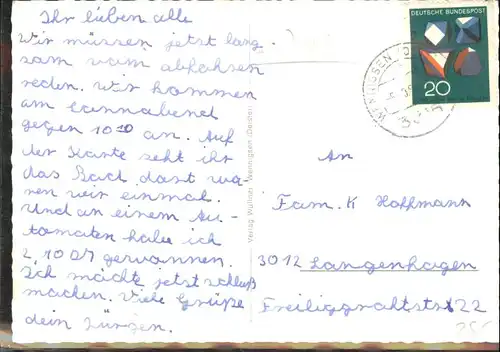 Ihr lieben alle
Wir müssen jetzt lang
sam vom abfahren
reden. Wir kommen
am sonnabend
gegen 10 10 an. Auf
der Karte seht ihr
das Bad dort wa
ren wir einmal.
Und an einem Au-
tomaten habe ich
2,10 DM gewonnen.
Ich möchte jetzt schluß
machen. Viele Grüße
dein Jürgen.
Verlag Wullbrandt, Wennigsen (Deister)
DEUTSCHE BUNDESPOST
20
WENNIGSEN
An
Fam. K Hoffmann
3012 Langenhagen
Freiliggrahtstr 22